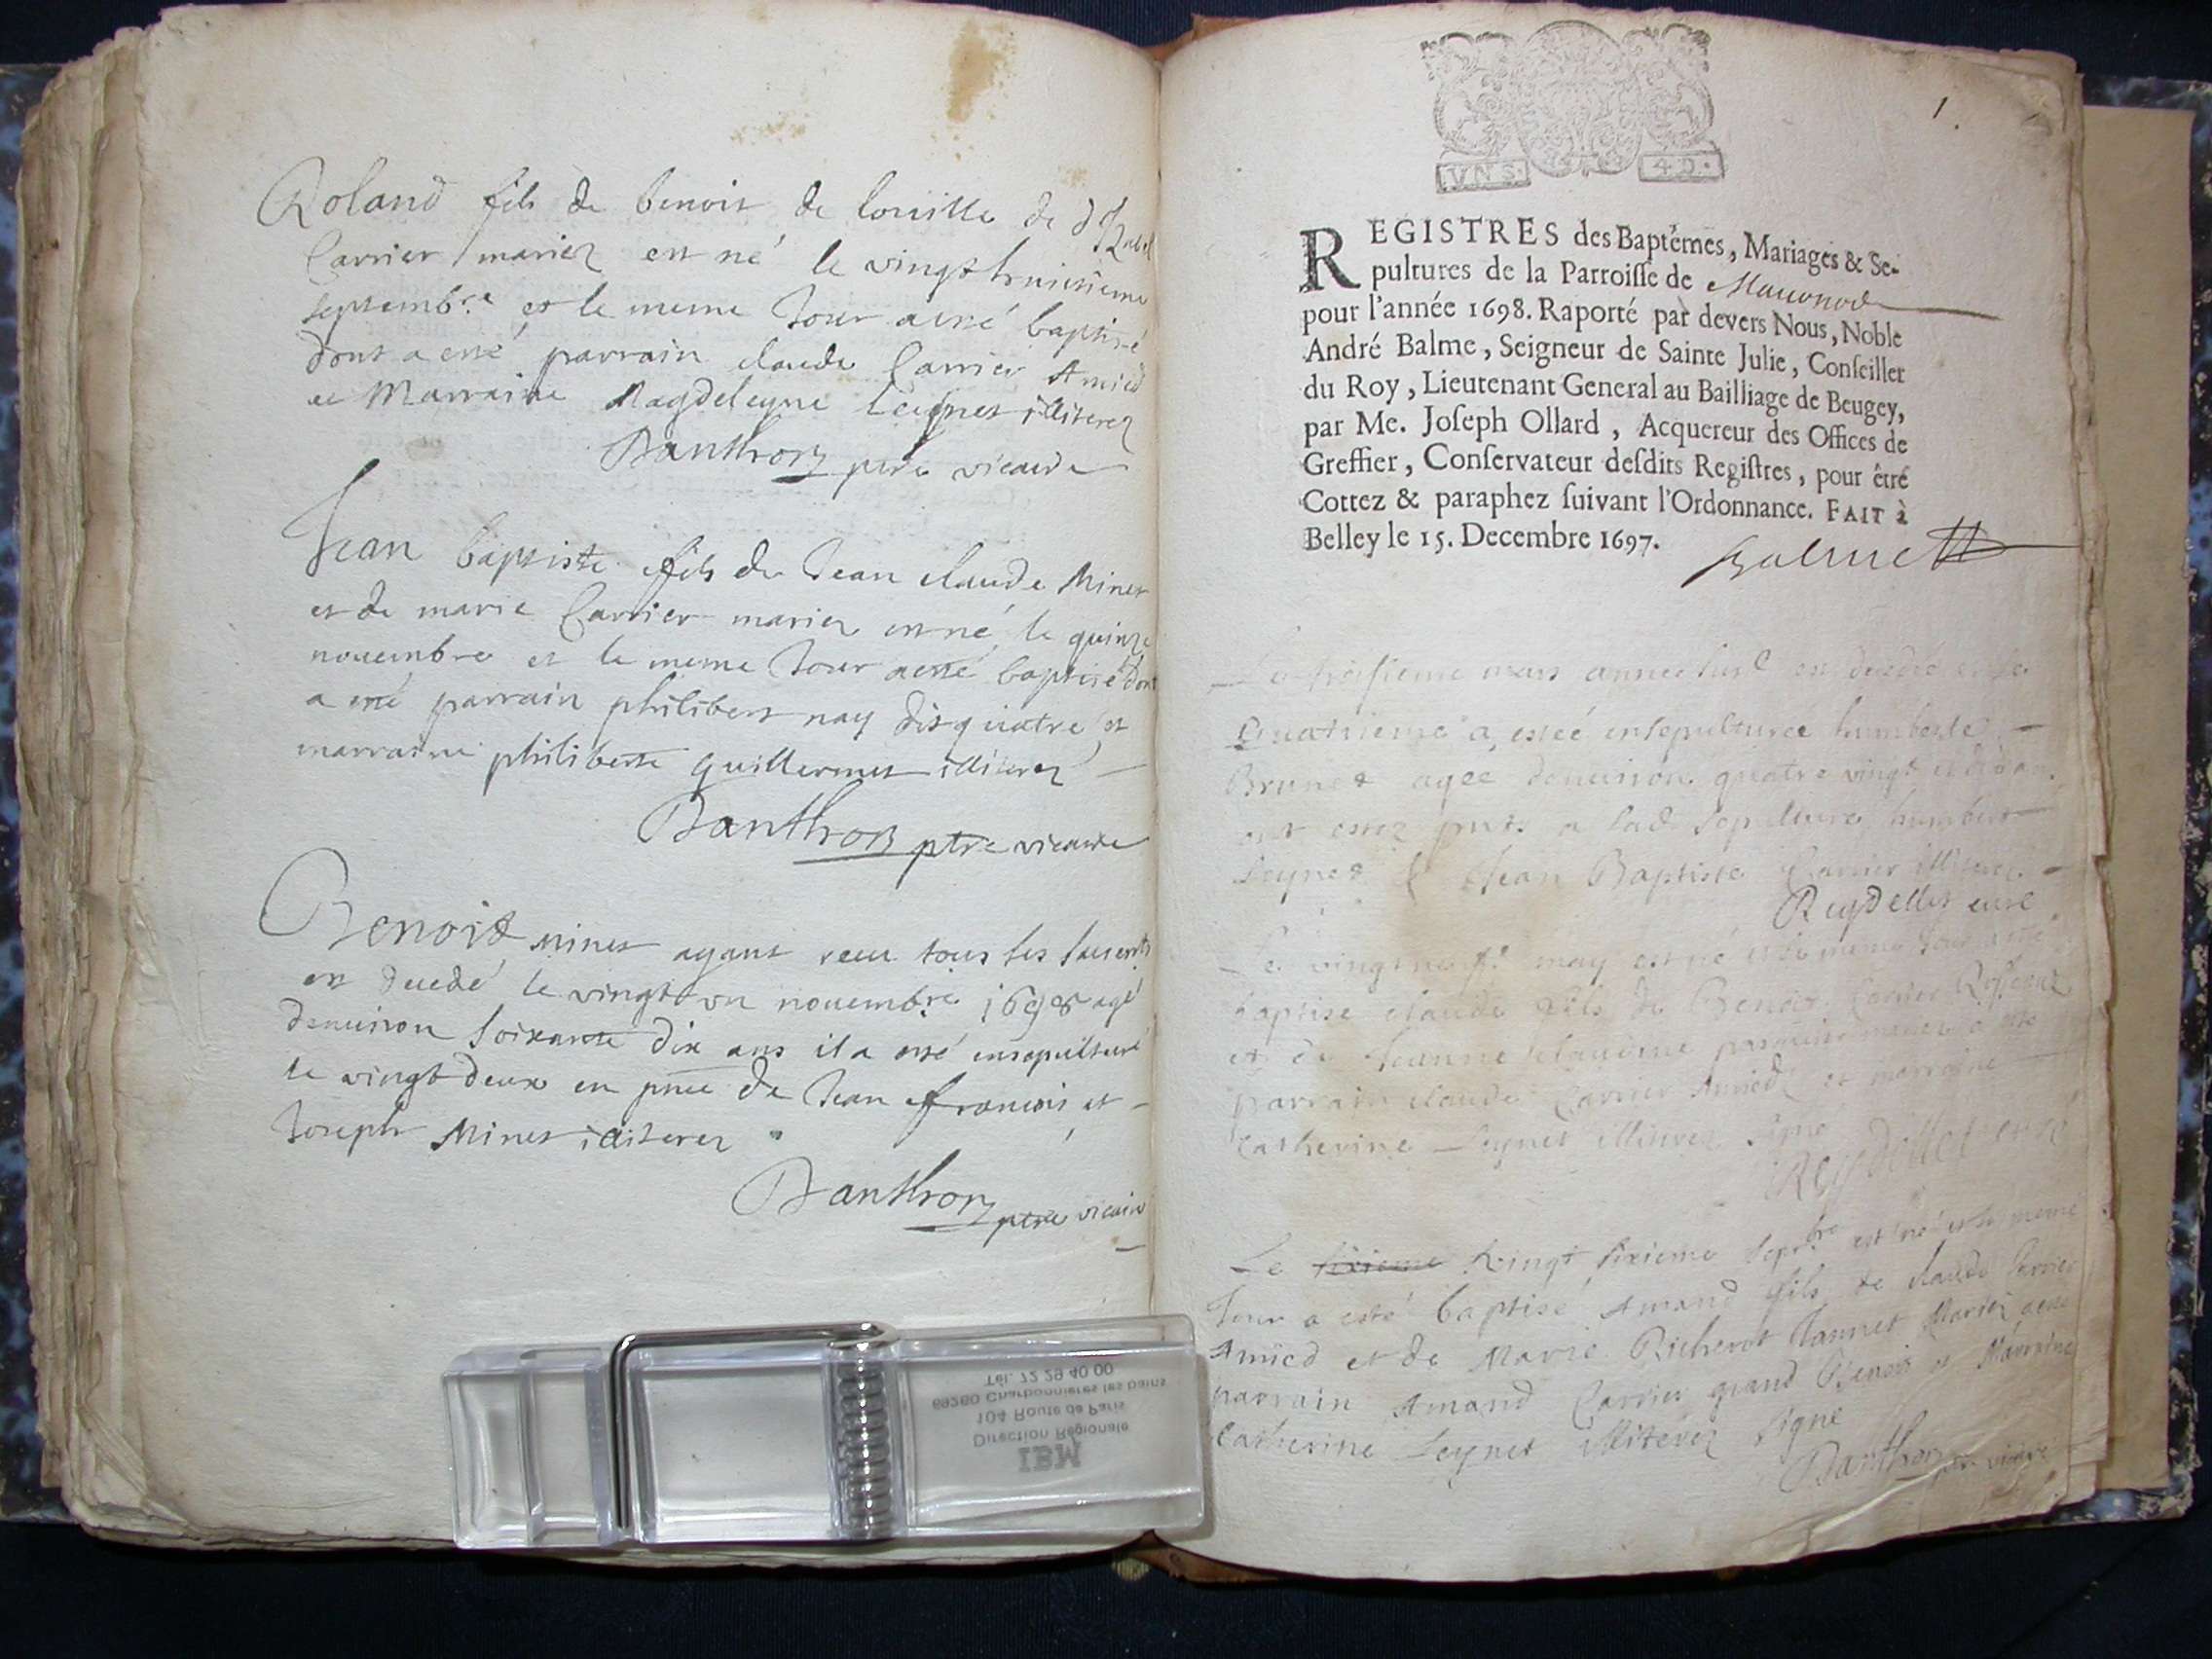 Roland fils de benoit de de
Carrier mariez est né le vingt huictieme
septemb.re et le meme Jour a esté baptisé
dont a esté parrain claude Carrier Amied
et Marraine Magdeleyne Leynet illiterez
Danthon ptre vicaire
Jean baptiste fils de Jean claude Minet
et de marie Carrier mariez est né le quinze
nouembre et le meme Jour a esté baptisé dont
a esté parrain philibert nay dis quatre et
marraine philiberte Guillermet illiterez
Danthon ptre vicaire
Benoist Minet ayant receu tous les
est decedé le vingt un nouembre 1698 agé
denuiron soixante dix ans il a esté ensepulturé
le vingt deux en pnce de Jean francois et
Joseph Minet illiterez
Danthon ptre vicaire
1.
VNS. 4D.
REGISTRES des Baptêmes, Mariages & Se-
pultures de la Parroisse de
pour l'année 1698. Raporté par devers Nous, Noble
André Balme, Seigneur de Sainte Julie, Conseiller
du Roy, Lieutenant General au Bailliage de Beugey,
par Me. Joseph Ollard, Acquereur des Offices de
Greffier, Conservateur desdits Registres, pour être
Cottez & paraphez suivant l'Ordonnance. FAIT à
Belley le 15. Decembre 1697.
Balme
Le troisieme mars année est decedé et le
Quatrieme a esteé ensepulturée humberte
Brunet agee denuiron quatre vingt
ont estez pnts a lad. sepulture humbert
Leynet & Jean Baptiste Carrier illiterez
Reydellet curé
Le vingt may est né et le meme Jour a esté
baptisé claude fils de Benoit Carrier
et de Jeanne mariez a esté
parrain claude Carrier Amied et marraine
Catherine Leynet illiterez signé
Reydellet curé
Le sixieme vingt sixieme sept.bre est né et le meme
Jour a esté baptisé Amand fils de claude Carrier
Amied et de Marie Richerot Jannet Mariez a esté
parrain Amand Carrier grand Benoit et Marraine
Catherine Leynet illiterez signé
Danthon ptre vicaire
IBM
Direction Régionale
104 Route de Paris
69260 Charbonnières les bains
Tél. 72 29 40 00